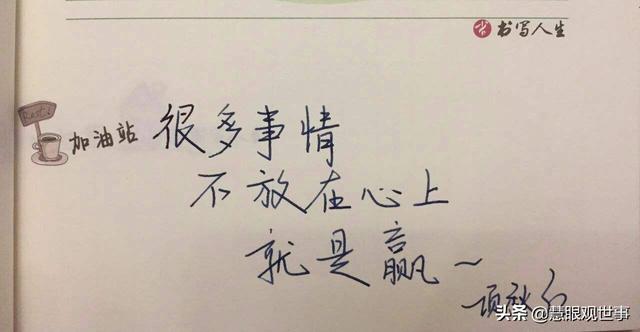 书写人生
Rest
加油站
很多事情
不放在心上
就是赢~
头条 @慧眼观世事